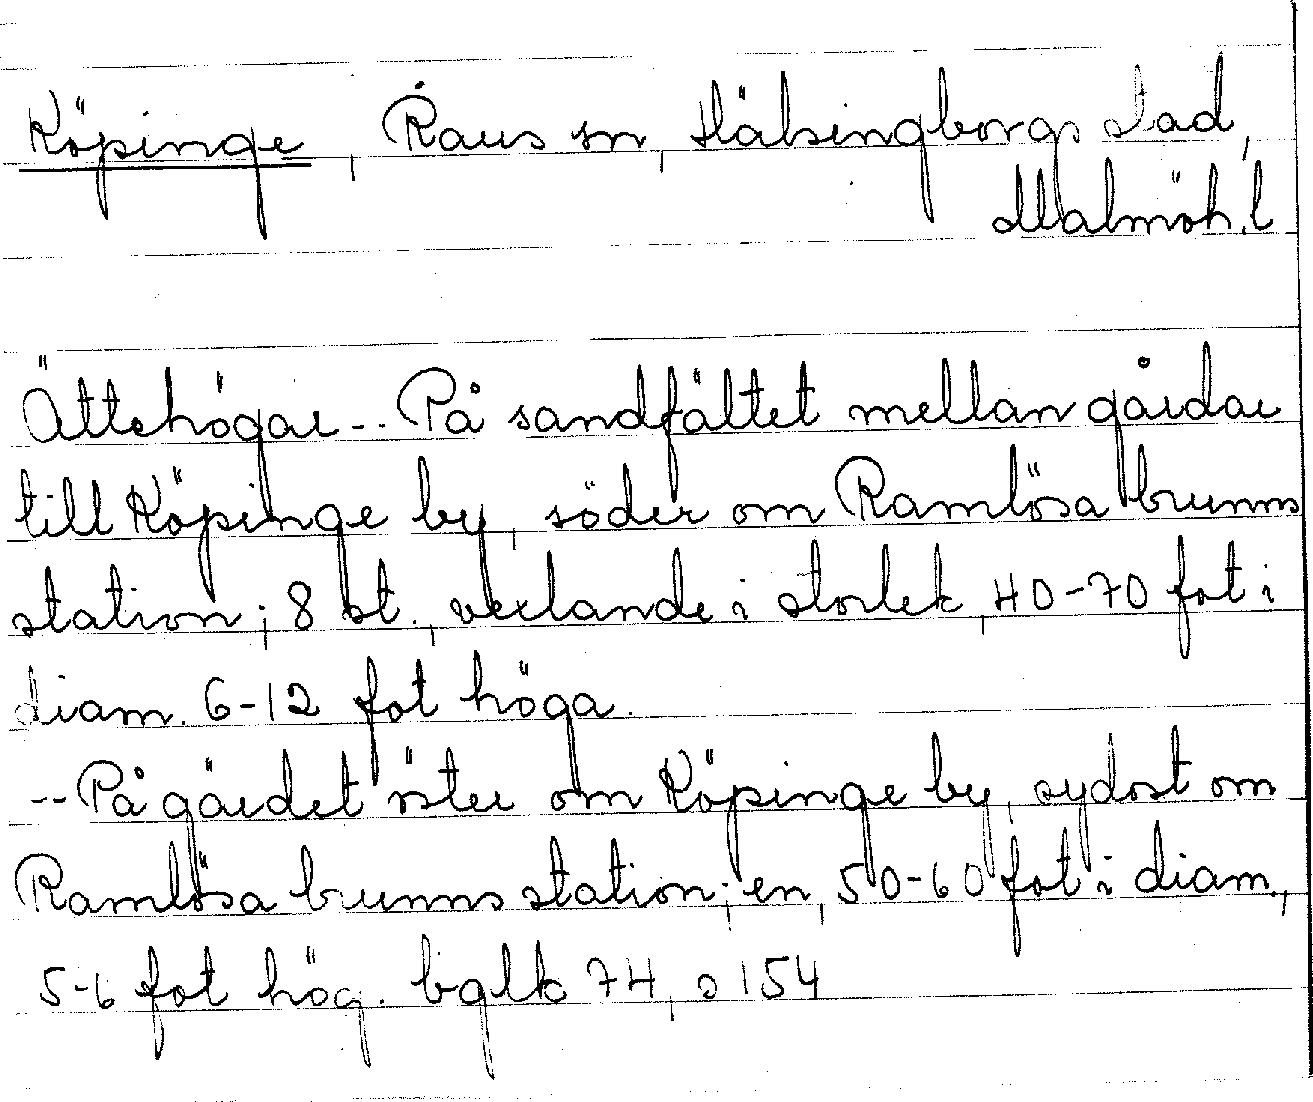 Köpinge, Raus sn, Hälsingborgs stad,
Malmöh.l
Ättehögar -- På sandfältet mellan gårdar
till Köpinge by, söder om Ramlösa brunns
station; 8 st., vexlande i storlek, 40-70 fot i
diam. 6-12 fot höga.
-- På gärdet öster om Köpinge by, sydost om
Ramlösa brunns station; en, 50-60 fot i diam.,
5-6 fot hög. bglk 74, s 154